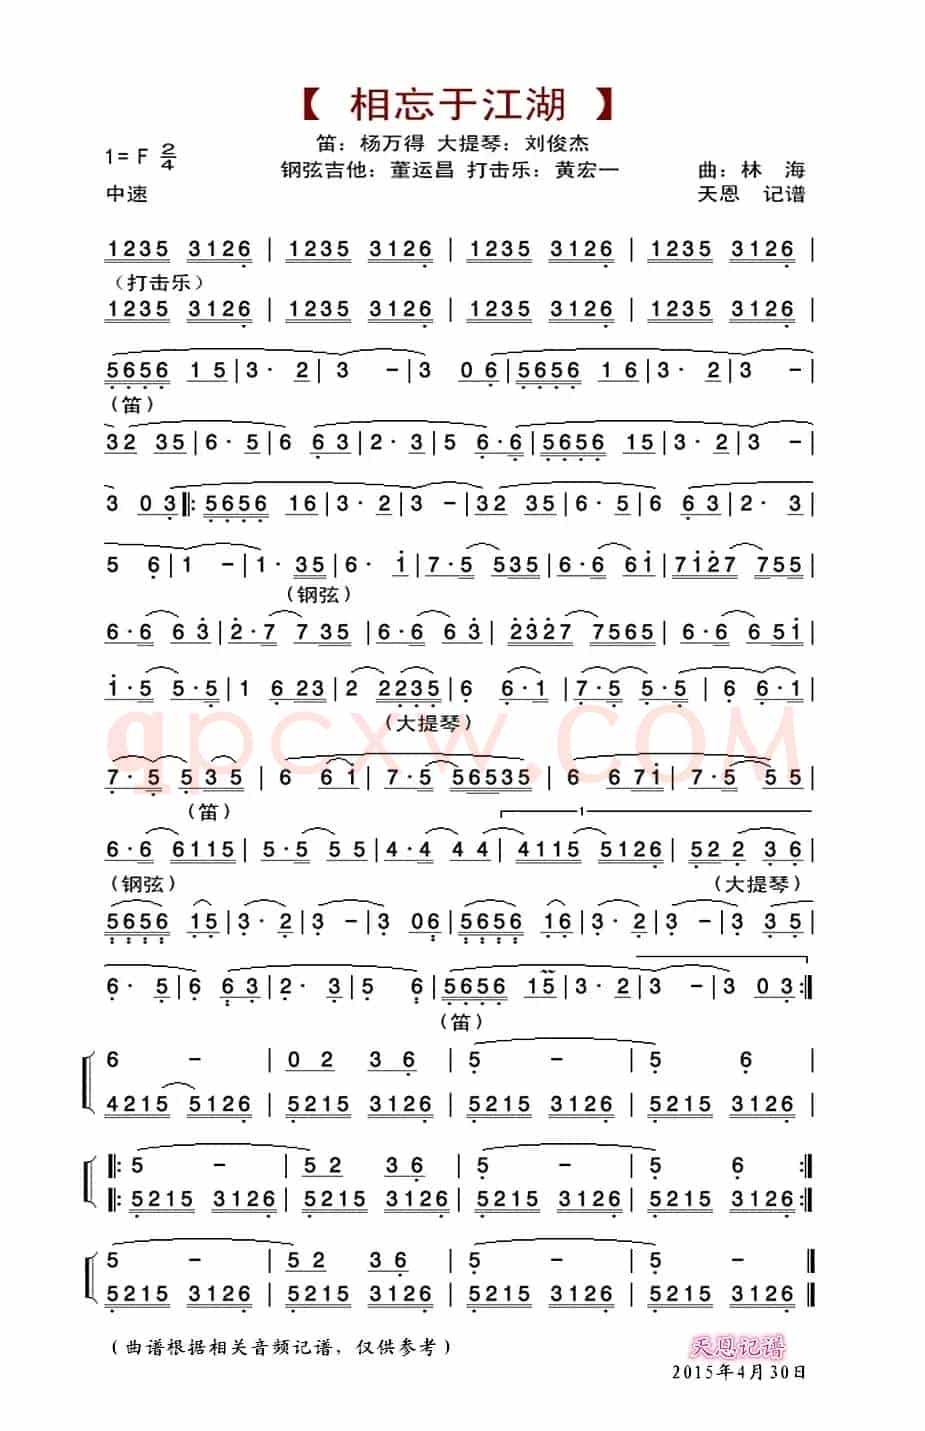 【 相忘于江湖 】
笛：杨万得 大提琴：刘俊杰
1=F 2/4
钢弦吉他：董运昌 打击乐：黄宏一
曲：林 海
中速
天恩 记谱
1235 3126 | 1235 3126 | 1235 3126 | 1235 3126 |
（打击乐）
1235 3126 | 1235 3126 | 1235 3126 | 1235 3126 |
5656 1 5 | 3· 2 | 3 – | 3 0 6 | 5656 1 6 | 3· 2 | 3 – |
（笛）
32 35 | 6· 5 | 6 6 3 | 2· 3 | 5 6·6 | 5656 15 | 3· 2 | 3 – |
3 0 3 ‖: 5656 16 | 3· 2 | 3 – | 32 35 | 6· 5 | 6 6 3 | 2· 3 |
5 6 | 1 – | 1· 35 | 6· i | 7·5 535 | 6·6 6i | 7i27 755 |
（钢弦）
6·6 63 | 2·7 7 35 | 6·6 63 | 2327 7565 | 6·6 65i |
i·5 5·5 | 1 6 23 | 2 2235 | 6 6·1 | 7·5 5·5 | 6 6·1 |
qpcxw.COM
（大提琴）
7· 5 535 | 6 6i | 7·5 56535 | 6 67i | 7·5 55 |
（笛）
1
6·6 6115 | 5·5 55 | 4·4 44 | 4115 5126 | 52 2 3 6 |
（钢弦）
（大提琴）
5656 15 | 3· 2 | 3 – | 3 06 | 5656 16 | 3· 2 | 3 – | 3 35 |
6· 5 | 6 63 | 2· 3 | 5 6 | 5656 15 | 3· 2 | 3 – | 3 03 :‖
（笛）
6 – | 0 2 3 6 | 5 – | 5 6 |
4215 5126 | 5215 3126 | 5215 3126 | 5215 3126 |
‖: 5 – | 5 2 3 6 | 5 – | 5 6 :‖
‖: 5215 3126 | 5215 3126 | 5215 3126 | 5215 3126 :‖
5 – | 5 2 3 6 | 5 – | 5 – ‖
5215 3126 | 5215 3126 | 5215 3126 | 5215 3126 ‖
（曲谱根据相关音频记谱，仅供参考）
天恩记谱
2015年4月30日